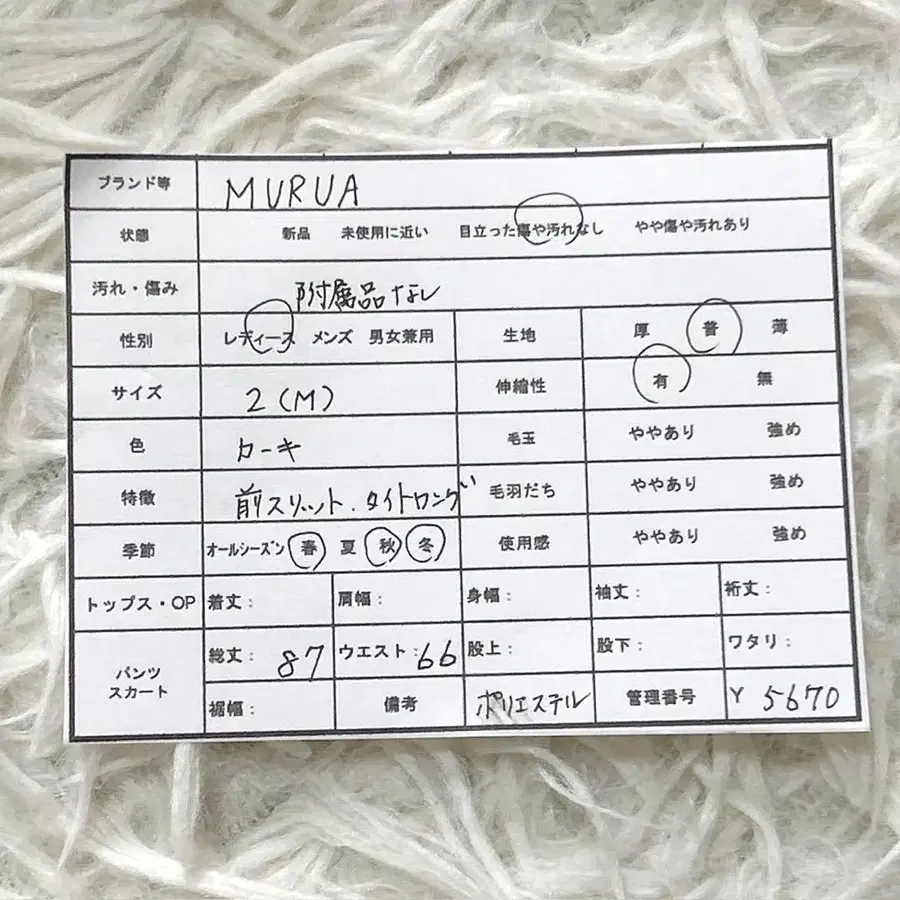 ブランド等 MURUA
状態 新品 未使用に近い 目立った傷や汚れなし やや傷や汚れあり
汚れ・傷み 附属品なし
性別 レディース メンズ 男女兼用 生地 厚 普 薄
サイズ 2(M) 伸縮性 有 無
色 カーキ 毛玉 ややあり 強め
特徴 前スリット.タイトロング 毛羽だち ややあり 強め
季節 オールシーズン 春 夏 秋 冬 使用感 ややあり 強め
トップス・OP 着丈: 肩幅: 身幅: 袖丈: 裄丈:
パンツ
スカート
総丈: 87 ウエスト: 66 股上: 股下: ワタリ:
裾幅: 備考 ポリエステル 管理番号 Y 5670